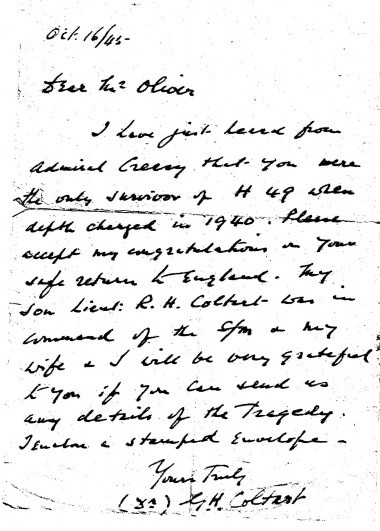 Oct. 16/45-
Dear Mr Oliver
I have just heard from
Admiral Creesy that you were
the only survivor of H 49 when
depth charged in 1940. Please
accept my congratulations on your
safe return to England. My
son Lieut: R. H. Coltart was in
command of the S/m & my
wife & I will be very grateful
to you if you can send us
any details of the Tragedy.
I enclose a stamped envelope -
Yours Truly
(Dr) G. H. Coltart